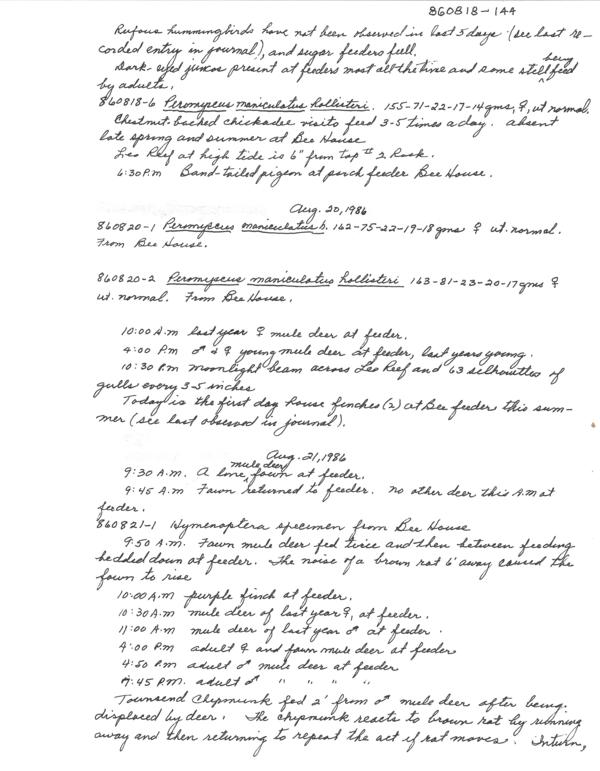 860818-144
Rufous hummingbirds have not been observed in last 5 days (see last re-
corded entry in journal), and sugar feeders full.
Dark-eyed juncos present at feeders most all the time and some still being feed
by adults.
860818-6 Peromyscus maniculatus hollisteri. 155-71-22-17-14 gms, ♀, ut normal.
Chestnut-backed chickadee visits feed 3-5 times a day. absent
late spring and summer at Bee House
Leo Reef at high tide is 6" from top # 2 Rock.
6:30 P.m Band-tailed pigeon at porch feeder Bee House.
Aug. 20, 1986
860820-1 Peromyscus maniculatus h. 162-75-22-19-18 gms ♀ ut. normal.
From Bee House.
860820-2 Peromyscus maniculatus hollisteri 163-81-23-20-17 gms ♀
ut. normal. From Bee House.
10:00 A.m last year ♀ mule deer at feeder.
4:00 P.m ♂ & ♀ young mule deer at feeder, last years young.
10:30 P.m moonlight beam across Leo Reef and 63 silhouttes of
gulls every 3-5 inches
Today is the first day house finches (2) at Bee feeder this sum-
mer (see last observed in journal).
Aug. 21, 1986
9:30 A.M. A lone mule deer fawn at feeder.
9:45 A.m Fawn returned to feeder. no other deer this A.m at
feeder.
860821-1 Hymenoptera specimen from Bee House
9:50 A.m. Fawn mule deer fed twice and then between feeding
bedded down at feeder. The noise of a brown rat 6' away caused the
fawn to rise
10:00 A.m purple finch at feeder.
10:30 A.m mule deer of last year ♀, at feeder.
11:00 A.m mule deer of last year ♂ at feeder.
4:00 P.m adult ♀ and fawn mule deer at feeder
4:50 P.m adult ♂ mule deer at feeder
4:45 P.M. adult ♂ " " " "
Townsend Chipmunk fed 2' from ♂ mule deer after being
displaced by deer. The chipmunk reacts to brown rat by running
away and then returning to repeat the act if rat moves. In turn,